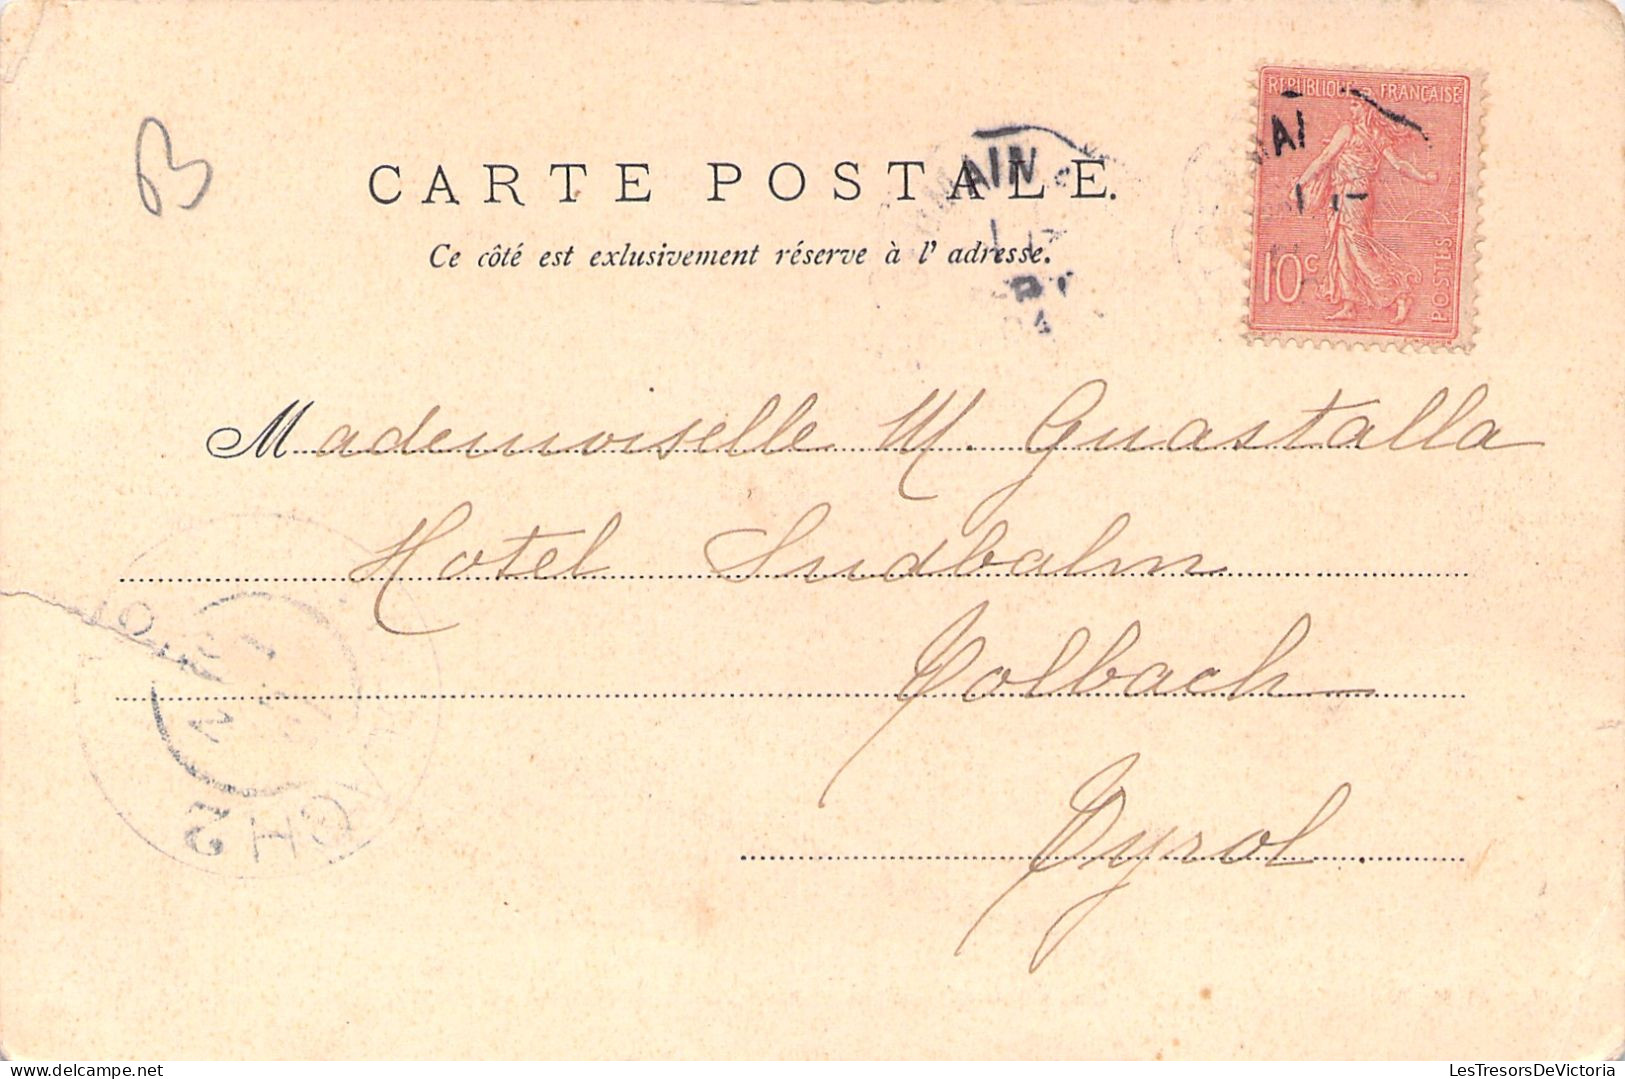 B
REPUBLIQUE FRANÇAISE
10c
POSTES
CARTE POSTALE.
Ce côté est exlusivement réserve à l' adresse.
MAIN
04
Mademoiselle M. Guastalla
Hotel Sudbahn
Tolbach
Tyrol
LesTresorsDeVictoria